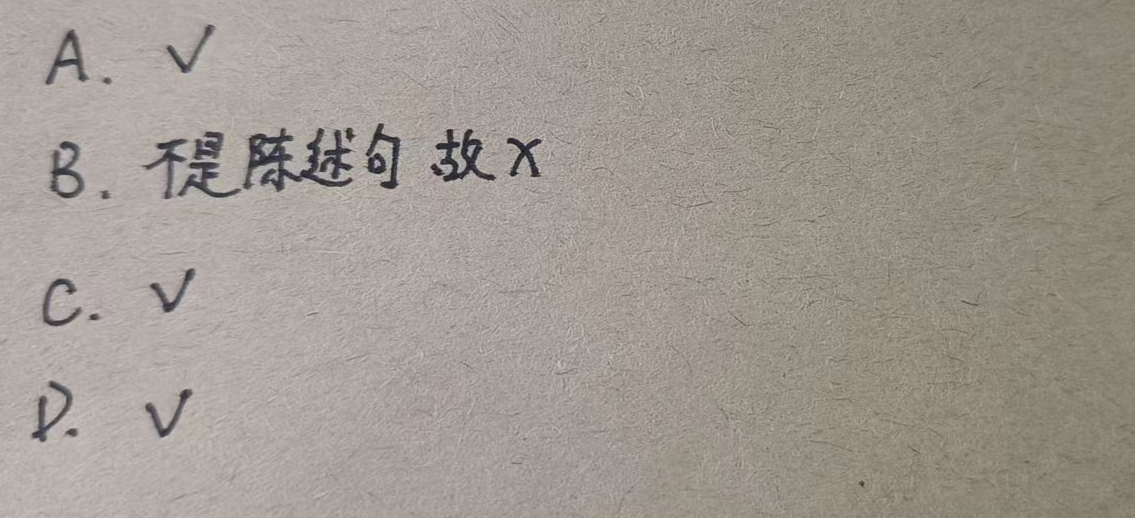 A. √
B. 不是陈述句 故×
C. √
D. √